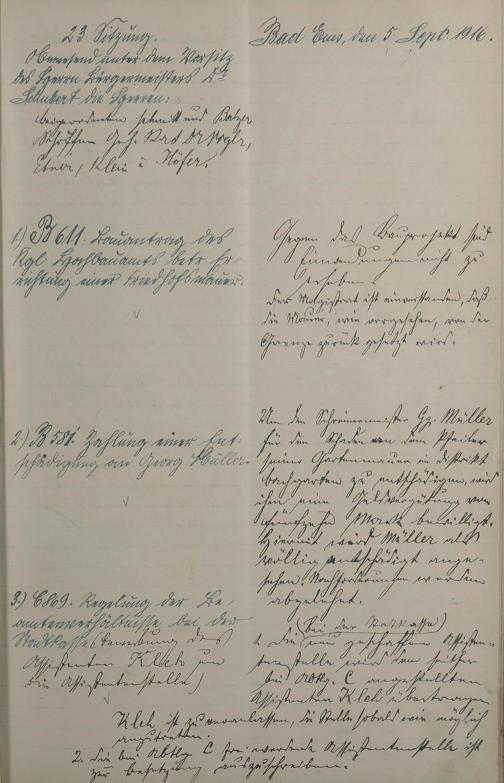 23. Sitzung.
Bad Ems, den 5. Sept. 1916.
Anwesend unter dem Vorsitz
des Herrn Bürgermeisters Dr.
Schubert die Herren:
Beigeordneten Schmitt und Balzer
Schöffen Geh. Rat Dr. Vogler,
Klein u. Höfer.
1.) B 611. Bauantrag des
Kgl. Hochbauamts betr. Er-
richtung einer Friedhofsmauer.
Gegen das Bauprojekt sind
Einwendungen nicht zu
erheben.
Der Magistrat ist einverstanden, daß
die Mauer, wie vorgesehen, von der
Grenze zurück gesetzt wird.
2.) B 581. Zahlung einer Ent-
schädigung an Georg Müller.
Um den Schreinermeister Gg. Müller
für den Schaden an dem Pfeiler
seiner Gartenmauer im Distrikt
Bachgarten zu entschädigen, wird
ihm eine Geldvergütung von
fünfzehn Mark bewilligt.
Hiermit wird Müller als
völlig entschädigt ange-
sehen. Nachforderungen werden
abgelehnt.
3.) C 869. Regelung der Be-
amtenverhältnisse bei der
Stadtkasse (Bewerbung des
Assistenten Kleh um
die Assistentenstelle)
(Bei der Stadtkasse)
1. Die neu geschaffene Assisten-
tenstelle wird dem seither
bei Abtlg. C angestellten
Assistenten Kleh übertragen
Kleh ist zu veranlassen, die Stelle sobald wie möglich
anzutreten.
2. Die bei Abtlg. C frei werdende Assistentenstelle ist
zur Besetzung auszuschreiben.